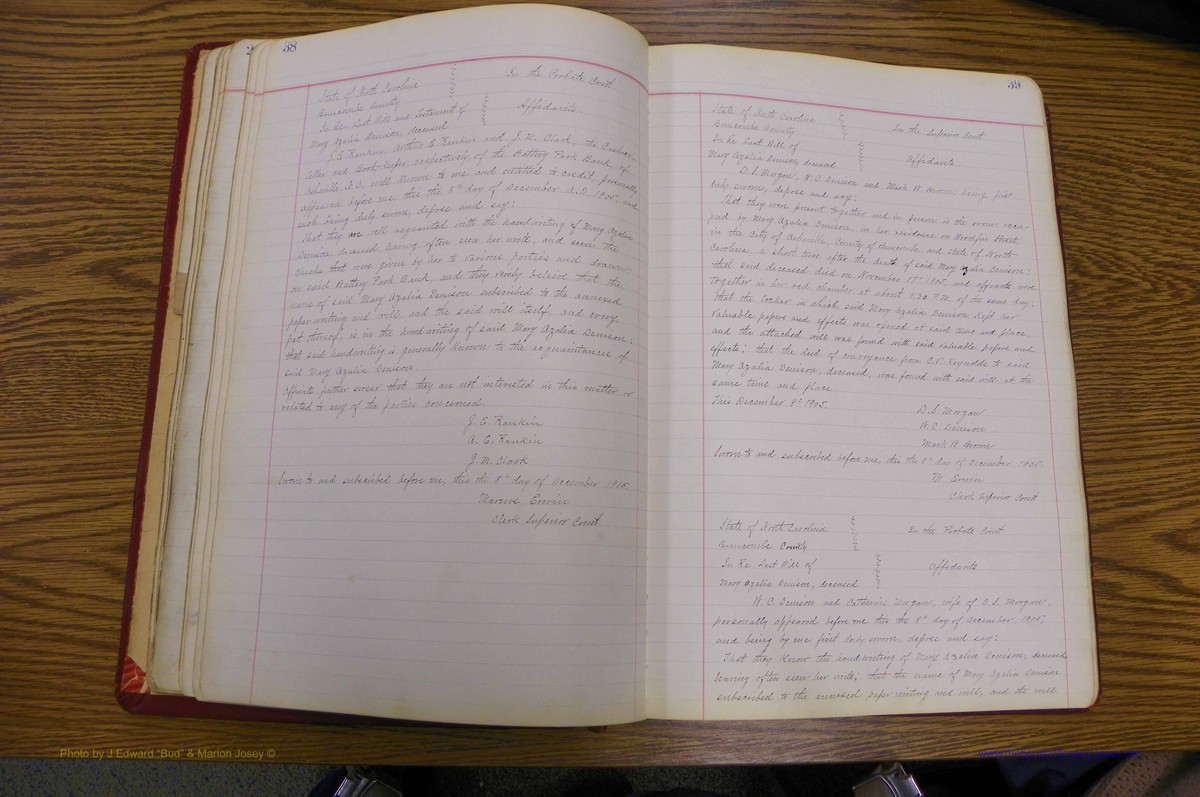 38
State of North Carolina
Buncombe County
In the Probate Court
In Re Last Will and Testament of
Mary Azalia Denison, deceased
Affidavits.
J. E. Rankin, Arthur E. Rankin and J. M. Clark, the Cashier,
teller and Book-keeper, respectively of the Battery Park Bank, of
Asheville, N.C., well known to me and entitled to credit, personally
appeared before me this the 8th day of December A.D. 1905, and
each being duly sworn, depose and say:
That they are well acquainted with the handwriting of Mary Azalia
Denison deceased, having often seen her write, and seen the
checks that were given by her to various parties and drawn
on said Battery Park Bank, and they verily believe that the
name of said Mary Azalia Denison subscribed to the annexed
paper writing and will, and the said will itself, and every
part thereof, is in the handwriting of said Mary Azalia Denison:
that said handwriting is generally known to the acquaintances of
said Mary Azalia Denison.
Affiants further swear that they are not interested in this matter or
related to any of the parties concerned.
J. E. Rankin
A. E. Rankin
J. M. Clark
Sworn to and subscribed before me, this the 8th day of December 1905
Marcus Erwin
Clerk Superior Court
39
State of North Carolina
Buncombe County
In the Superior Court
In Re Last Will of
Mary Azalia Denison deceased
Affidavits.
D. S. Morgan, W. C. Denison and Mark W. Brown, being first
duly sworn, depose and say:
That they were present together and in person in the room occu-
pied by Mary Azalia Denison, in her residence on Woodfin Street,
in the City of Asheville, County of Buncombe and State of North
Carolina, a short time after the death of said Mary Azalia Denison:
that said deceased died on November 17th 1905, and affiants were
together in her bed chamber at about 1:30 P.M. of the same day;
that the locker in which said Mary Azalia Denison kept her
valuable papers and effects was opened at said time and place,
and the attached will was found with said valuable papers and
effects; that the deed of conveyance from C.T. Reynolds to said
Mary Azalia Denison, deceased, was found with said will at the
same time and place.
This December 8th 1905.
D. S. Morgan
W. C. Denison
Mark W. Brown
Sworn to and subscribed before me, this the 8th day of December 1905.
M. Erwin
Clerk Superior Court
State of North Carolina
Buncombe County
In the Probate Court
In Re Last Will of
Mary Azalia Denison, deceased
Affidavits
W. C. Denison and Catherine Morgan, wife of D. S. Morgan,
personally appeared before me this the 8th day of December, 1905,
and being by me first duly sworn, depose and say:
That they know the handwriting of Mary Azalia Denison, deceased,
having often seen her write; that the name of Mary Azalia Denison
subscribed to the annexed paper writing and will, and the will
Photo by J Edward "Bud" & Marion Josey ©